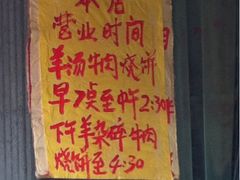 本店
营业时间
羊汤牛肉烧饼
早7点至中午2:30
下午羊杂碎牛肉
烧饼至4:30